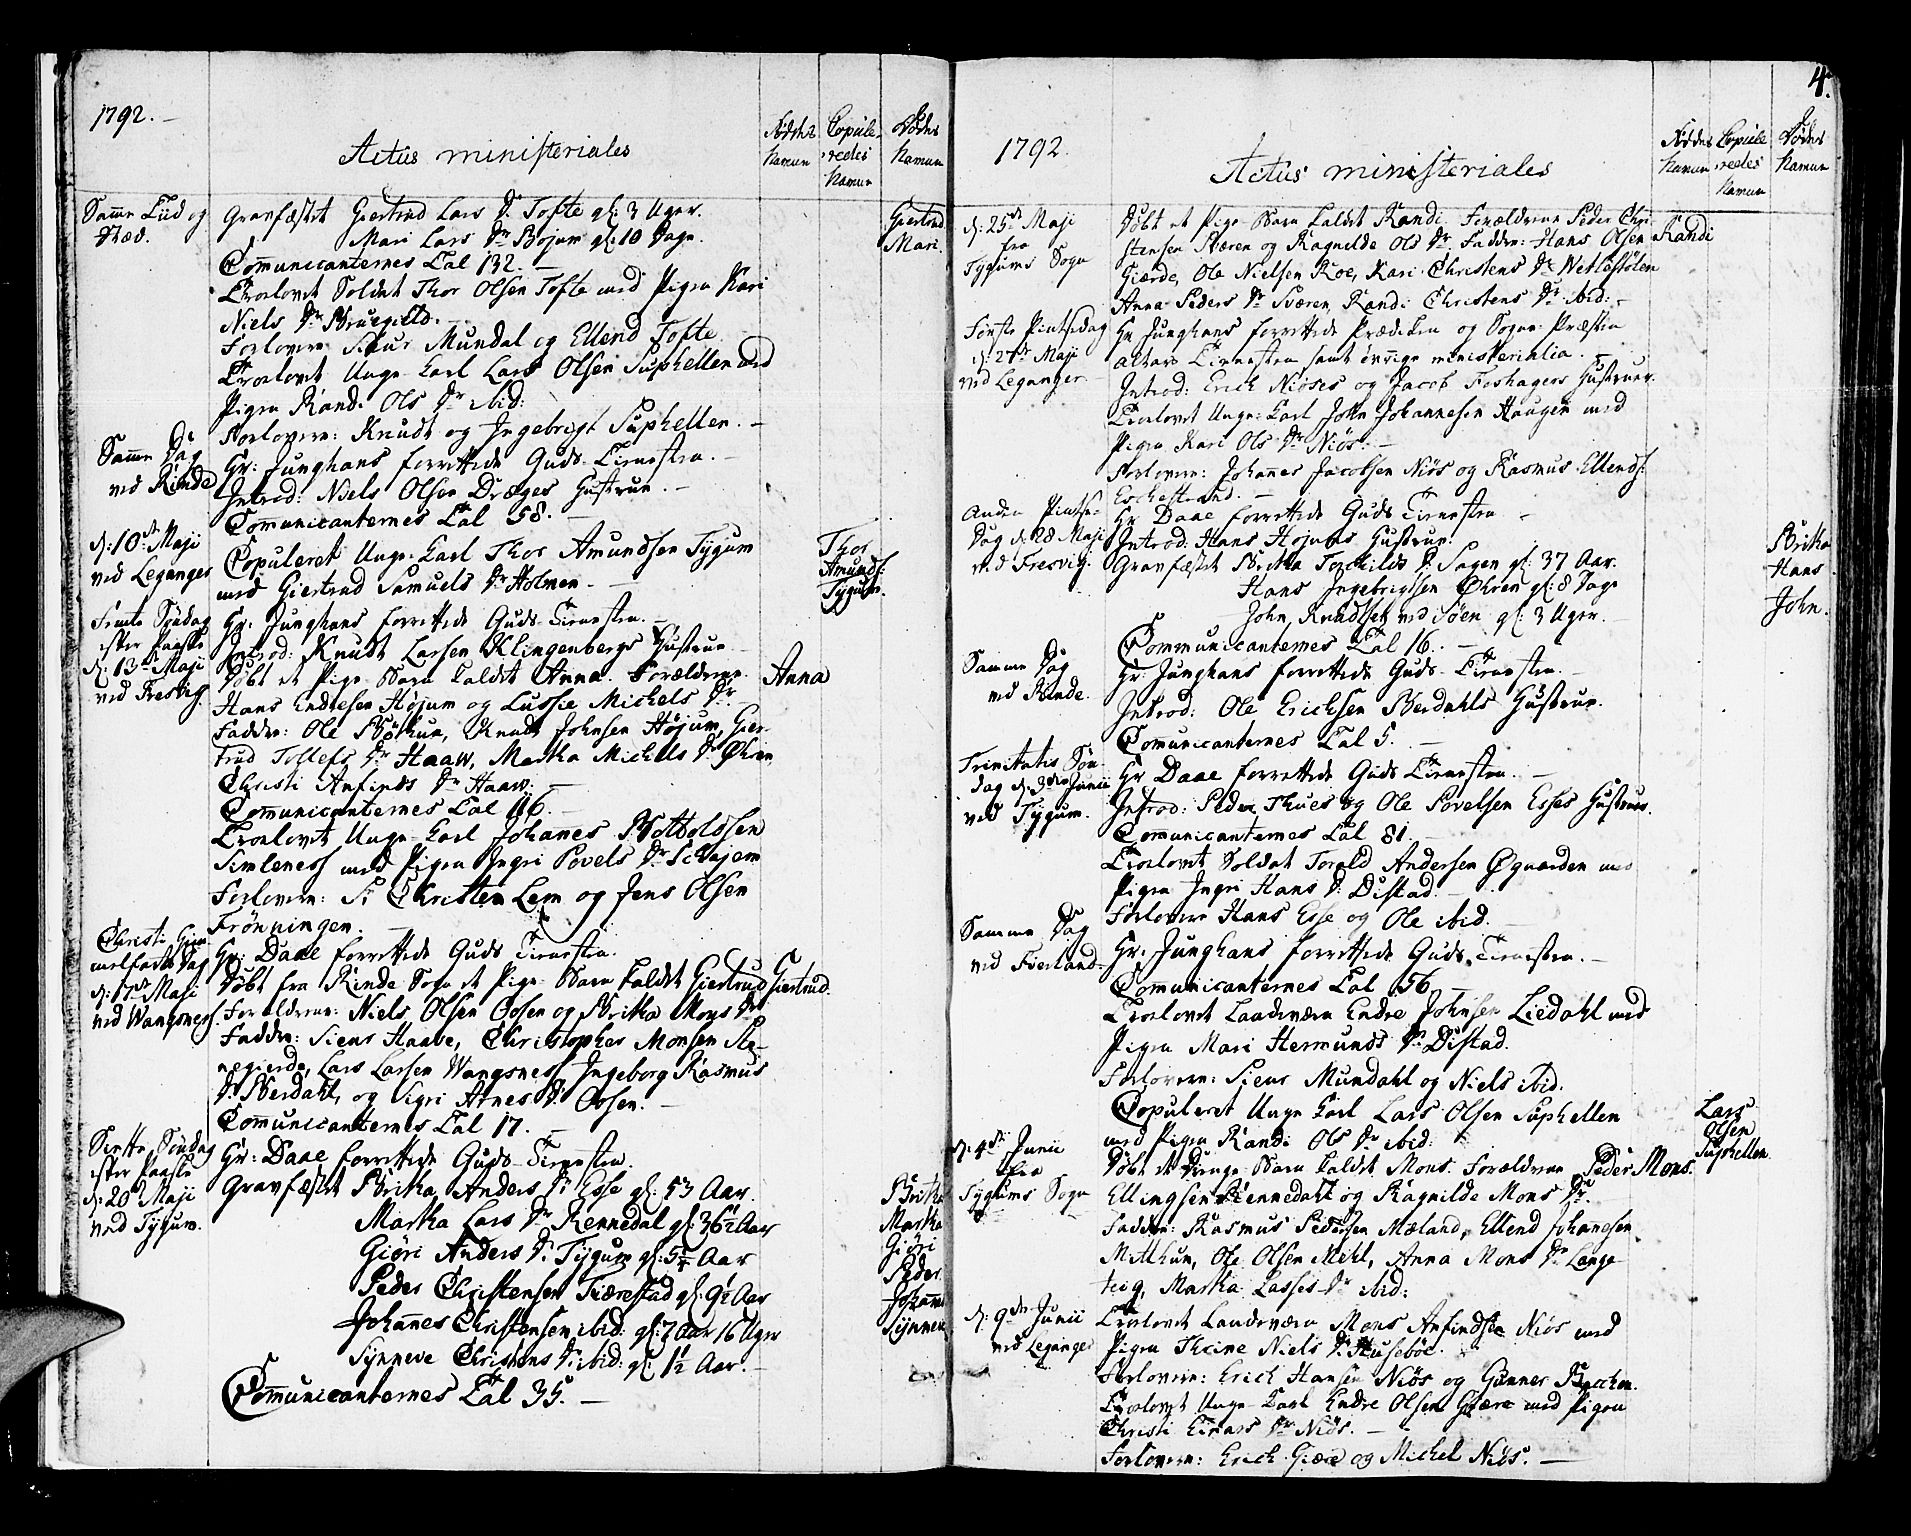 1792.
Actus ministeriales
Fødde Namnn
Copule-redes Namnn
Dødes Namnn
Samme Tiid og Stæd.
Gravfæstet Giertrud Lars Dr Tofte gl: 3 Uger. Giertrud
Mari Lars Dr Bøjum gl: 10 Dage. Mari.
Communicanternes Tal 132.
Trolovet Soldat Thor Olsen Tofte med Pigen Kari
Niels Dr Bruegield.
Forlovere Siur Mundal og Ellend Tofte
Trolovet Unge Karl Lars Olsen Suphellen med
Pigen Randi Ols Dr ibid:
Forlovere: Knudt og Ingebrigt Suphellen.
Samme Dag ved Rinde
Hr: Junghans forrettede Guds Tienesten.
Introd: Niels Olsen Dræges Hustrue.
Communicanternes Tal 58.
d: 10de Maji ved Leganger
Copuleret Unge Karl Thor Amundsen Tygum
med Giertrud Samuels Dr Holmen.
Thor Amunds: Tygum.
Femte Søndag efter Paaske d: 13de Maji ved Fresvig.
Hr: Junghans forrettede Guds Tienesten.
Introd: Knudt Larsen Klingenbergs Hustrue
Døbt et Pige Barn kaldet Anna. Forældrene Anna
Hans Endresen Højum og Lussie Michels Dr
Faddere: Ole Bøthun, Knudt Johnsen Højum, Gier-
trud Tollefs Dr Haaw, Martha Michels Dr Øhren
Christi Anfinds Dr Haaw.
Communicanternes Tal 116.
Trolovet Unge Karl Johannes Botholdssen
Simleness med Pigen Ingri Povels Dr
Forlovere: Sr Christen Lem og Jens Olsen
Frønningen.
Christi Himmelfarts Dag d: 17de Maji ved Wangsness.
Hr: Daae forrettede Guds Tienesten.
Døbt fra Rinde Sogn et Pige Barn kaldet Giertrud Giertrud.
Forældrene: Niels Olsen Oosen og Britha Mons Dr
Faddere: Siens Haave, Christopher Monsen Ha-
negierde, Lars Larsen Wangsness, Ingeborg Rasmus
Dr Berdahl, og Sigri Arnes Dr Oosen.
Communicanternes Tal 17.
Siette Søndag efter Paaske d: 20de Maji ved Tygum.
Hr: Daae forrettede Guds Tienesten.
Gravfæstet Britha Anders Dr Esse gl: 53 Aar. Britha
Martha Lars Dr Rennedal gl: 36½ Aar Martha
Giøri Anders Dr Tygum gl: 5¼ Aar Giøri
Peder Christensen Tiærestad gl: 9½ Aar Peder
Johannes Christensen ibid: gl: 7 Aar 16 Uger Johannes
Synneve Christens Dr ibid: gl: 1½ Aar. Synneve
Communicanternes Tal 35.
4.
1792.
Actus ministeriales
Fødde Namnn
Copule-redes Namnn
Dødes Namnn
d: 25de Maji fra Tygums Sogn
Døbt et Pige Barn kaldet Randi. Forældrene Peder Chri-
stensen Sværen og Ragnilde Ols Dr Faddere: Hans Olsen Randi
Gierde, Ole Nielsen Roe, Kari Christens Dr Wetlestølen
Anna Peders Dr Sværen, Randi Christens Dr ibid:
Første Pintsedag d: 27de Maji ved Leganger
Hr Junghans forrettede Prædiken og Sogne-Præsten
Altare Tienesten samt øvrige ministerialia.
Introd: Erich Niøses og Jacob Foshagens Hustruer.
Trolovet Unge Karl John Johannesen Haugen med
Pigen Kari Ols Dr Niøs.
Forlovere: Johannes Jacobsen Niøs og Rasmus Ellends:
Eschestrand.
Anden Pintse-Dag d: 28 Maji ved Fresvig.
Hr Daae forrettede Guds Tienesten
Introd: Hans Hojums Hustrue.
Gravfæstet Britha Torchilds Dr Sagen gl: 37 Aar. Britha
Hans Ingebrigtsen Øhren gl: 8 Dage Hans
John Knudtsen ved Søen gl: 3 Uger. John.
Communicanternes Tal 16.
Samme Dag ved Rinde
Hr: Junghans forrettede Guds Tienesten.
Introd: Ole Erichsen Berdahls Hustrue.
Communicanternes Tal 5.
Trinitatis Søn-dag d: 3die Junii ved Tygum.
Hr Daae forrettede Guds Tienesten.
Introd: Peder Thues og Ole Povelsen Esses Hustruer.
Communicanternes Tal 81.
Trolovet Soldat Torald Andersen Øgaarden med
Pigen Ingri Hans Dr Distad.
Forlovere Hans Esse og Ole ibid.
Samme Dag ved Fierland.
Hr: Junghans forrettede Guds Tienesten.
Communicanternes Tal 56
Trolovet Landværn Endre Johnsen Liedahl med
Pigen Mari Hermunds Dr Distad.
Forlovere: Siens Mundahl og Niels ibid.
Copuleret Unge Karl Lars Olsen Suphellen
med Pigen Randi Ols Dr ibid:
Lars Olsen Suphellen
d: 4de Junii fra Tygums Sogn
Døbt et Drenge Barn kaldet Mons. Forældrene Peder Mons.
Ellingsen Rennedahl og Ragnilde Mons Dr
Faddere: Rasmus Pedersen Mæland, Ellend Johannesen
Midthun, Ole Olsen Mehl, Anna Mons Dr Lange
teig, Martha Lasses Dr ibid:
d: 9de Junii ved Leganger
Trolovet Landværn Mons Anfindsen Niøs med
Pigen Thrine Niels Dr Husebøe.
Forlovere: Erich Hansen Niøs og Gunner Bachen.
Trolovet Unge Karl Endre Olsen Giære med Pigen
Christi Einars Dr Niøs.
Forlovere: Erich Giære og Michel Niøs.